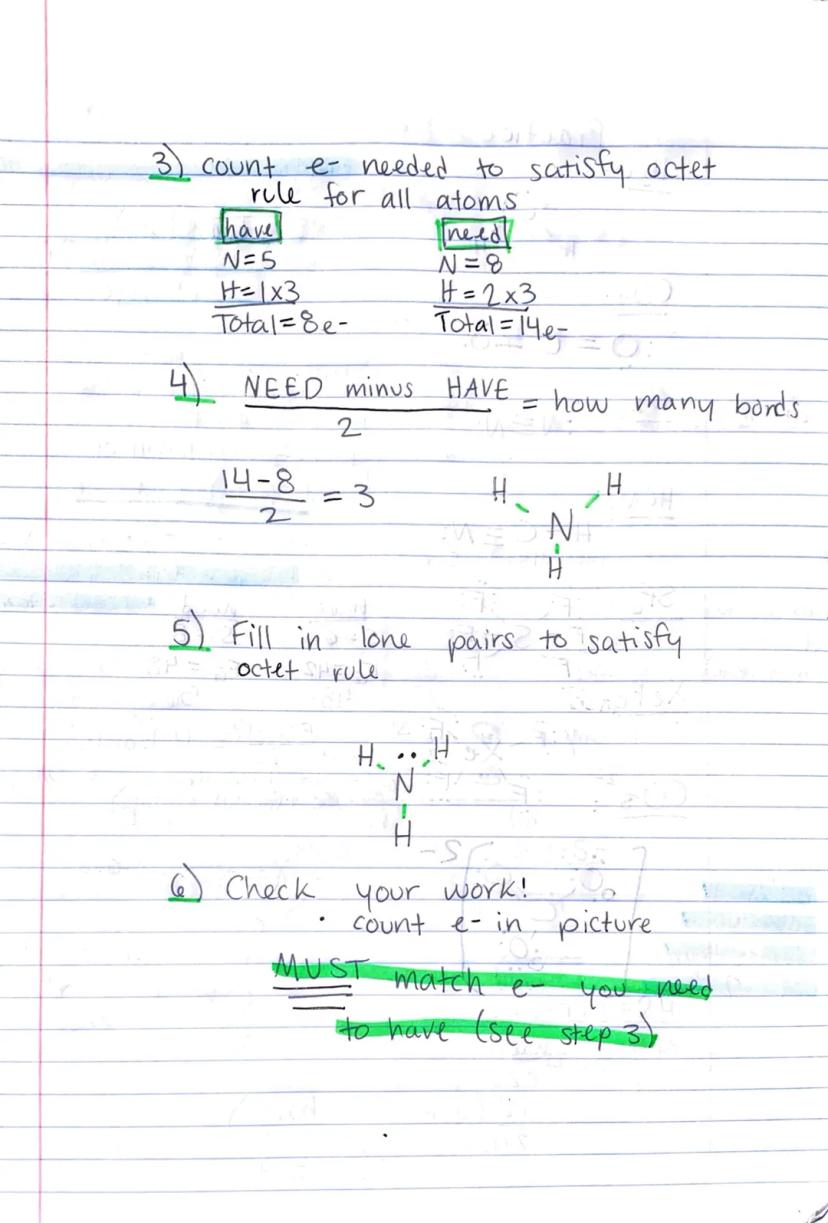 3) count e- needed to satisfy octet
rule for all atoms
have need
N=5 N=8
H=1x3 H=2x3
Total=8e- Total=14e-
4) NEED minus HAVE = how many bonds
2
14-8 = 3
2
H H
N
H
5) Fill in lone pairs to satisfy
octet rule
H •• H
N
H
6) Check your work!
• count e- in picture
MUST match e- you need
to have (see step 3)